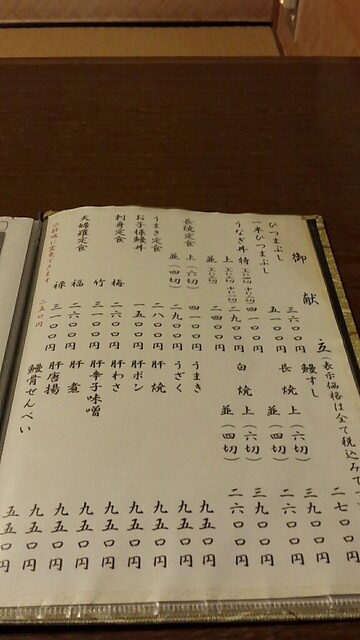 御献立(表示価格は全て税込みで
ひつまぶし 三六〇〇円
一本ひつまぶし 五一〇〇円
うなぎ丼 特 四一〇〇円
上 二九〇〇円
並 二一〇〇円
長焼定食 上(六切) 四一〇〇円
並(四切) 二九〇〇円
うまき定食 二八〇〇円
お子様鰻丼 一五〇〇円
刺身定食 梅 二六〇〇円
竹 三一〇〇円
天婦羅定食 福 二六〇〇円
禄 三一〇〇円
二五〇円
鰻すし 二七〇〇円
長焼 上(六切) 三九〇〇円
並(四切) 二六〇〇円
白焼 上(六切) 三九〇〇円
並(四切) 二六〇〇円
うまき 九五〇円
うざく 九五〇円
肝焼 九五〇円
肝ポン 九五〇円
肝わさ 九五〇円
肝辛子味噌 九五〇円
肝煮 九五〇円
肝唐揚 九五〇円
鰻骨せんべい 五五〇円